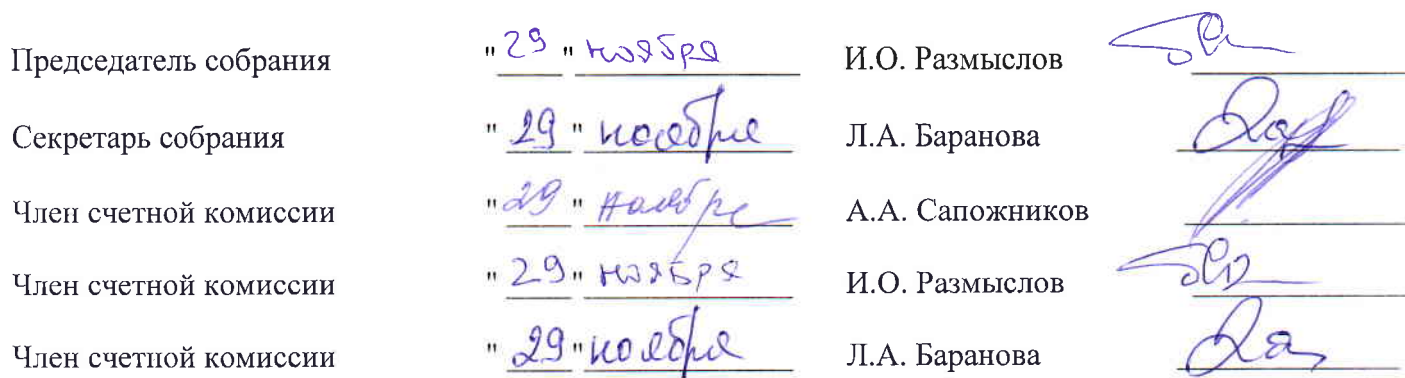 Председатель собрания "29" ноября И.О. Размыслов
Секретарь собрания "29" ноября Л.А. Баранова
Член счетной комиссии "29" ноября А.А. Сапожников
Член счетной комиссии "29" ноября И.О. Размыслов
Член счетной комиссии "29" ноября Л.А. Баранова